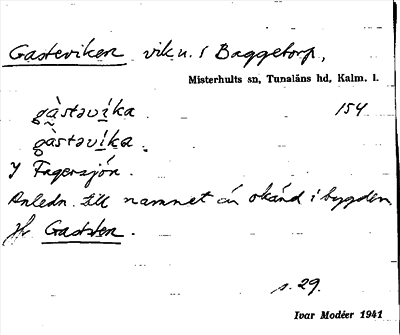 Gasteviken vik n. i Baggetorp,
Misterhults sn, Tunaläns hd, Kalm. l.
gàstəvíka 154
gàstəvíka.
I Fagersjön.
Anledn. till namnet är okänd i bygden
Jfr Gaststen.
s. 29.
Ivar Modéer 1941